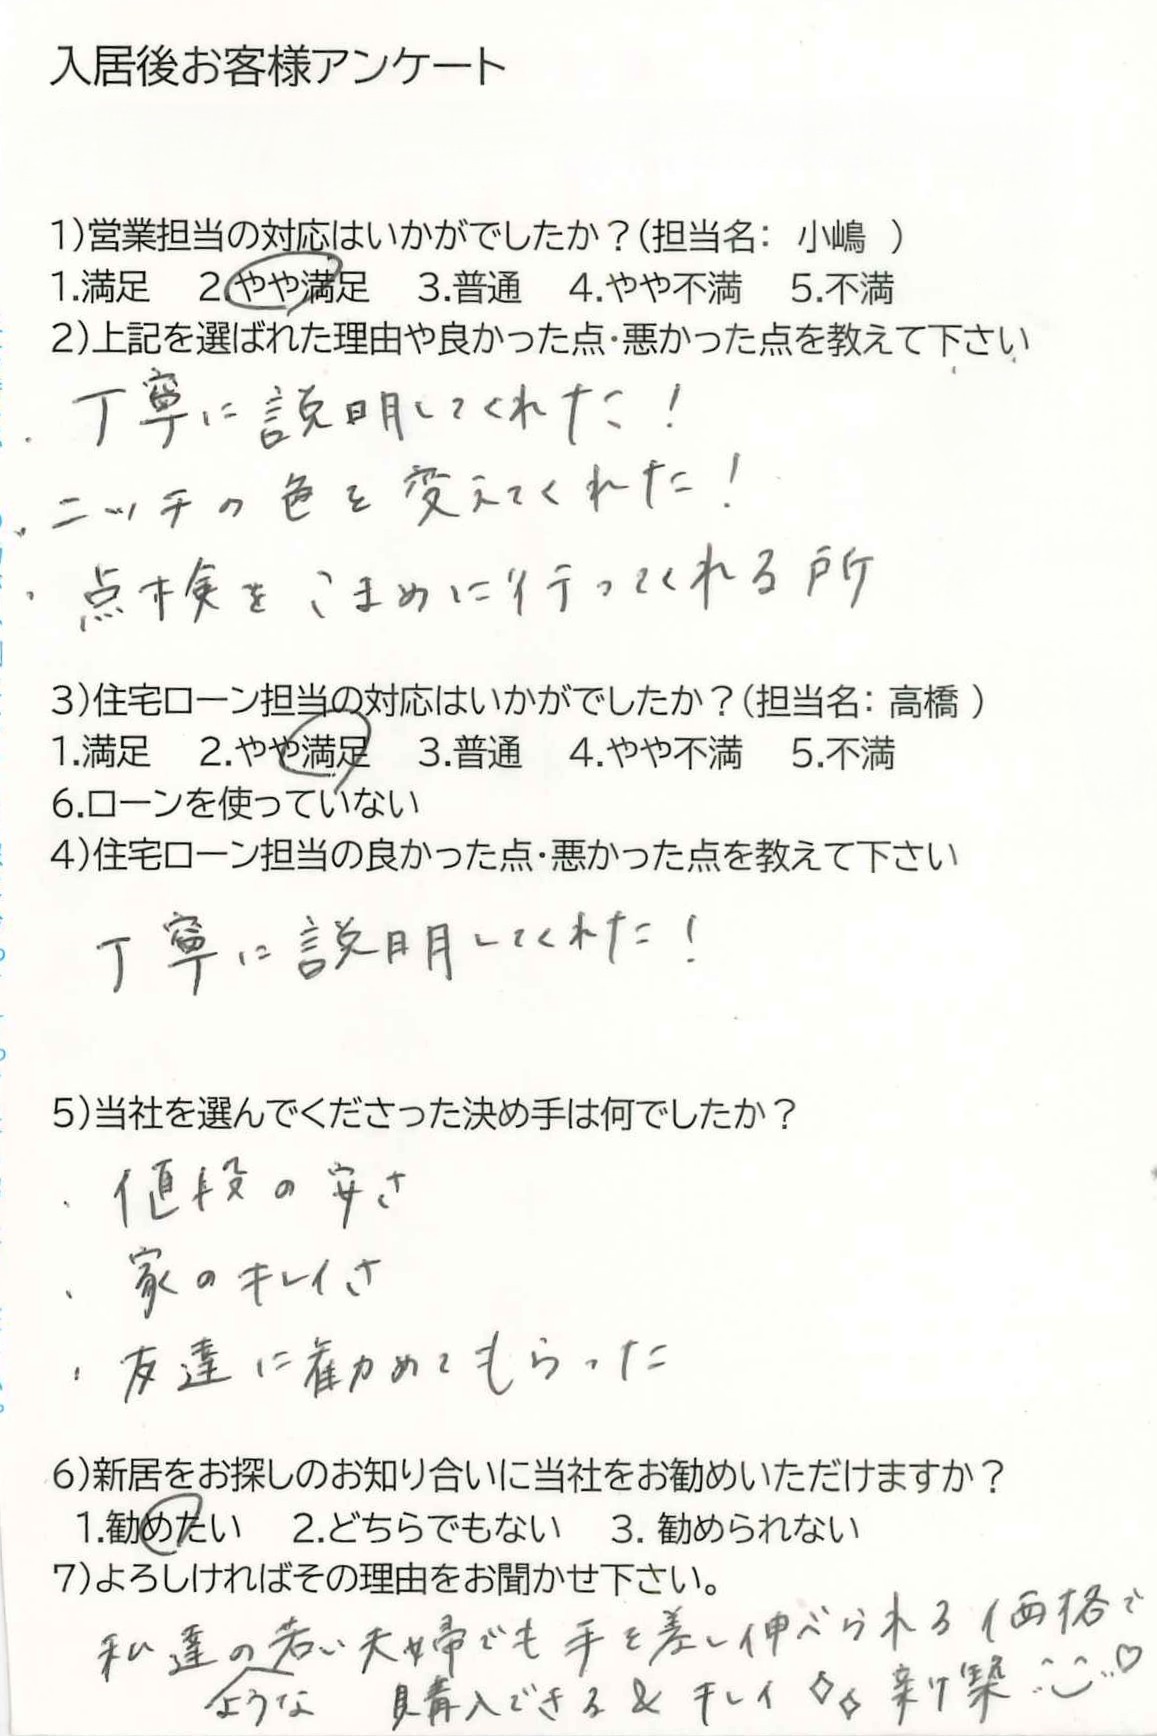 入居後お客様アンケート
1)営業担当の対応はいかがでしたか?(担当名: 小嶋 )
1.満足 2.やや満足 3.普通 4.やや不満 5.不満
2)上記を選ばれた理由や良かった点・悪かった点を教えて下さい
・丁寧に説明してくれた!
・ニッチの色を変えてくれた!
・点検をこまめに行ってくれる所
3)住宅ローン担当の対応はいかがでしたか?(担当名: 高橋 )
1.満足 2.やや満足 3.普通 4.やや不満 5.不満
6.ローンを使っていない
4)住宅ローン担当の良かった点・悪かった点を教えて下さい
丁寧に説明してくれた!
5)当社を選んでくださった決め手は何でしたか?
・値段の安さ
・家のキレイさ
・友達に勧めてもらった
6)新居をお探しのお知り合いに当社をお勧めいただけますか?
1.勧めたい 2.どちらでもない 3. 勧められない
7)よろしければその理由をお聞かせ下さい。
私達の若い夫婦でも手を差し伸べられる価格で
ような 購入できる & キレイ 新築